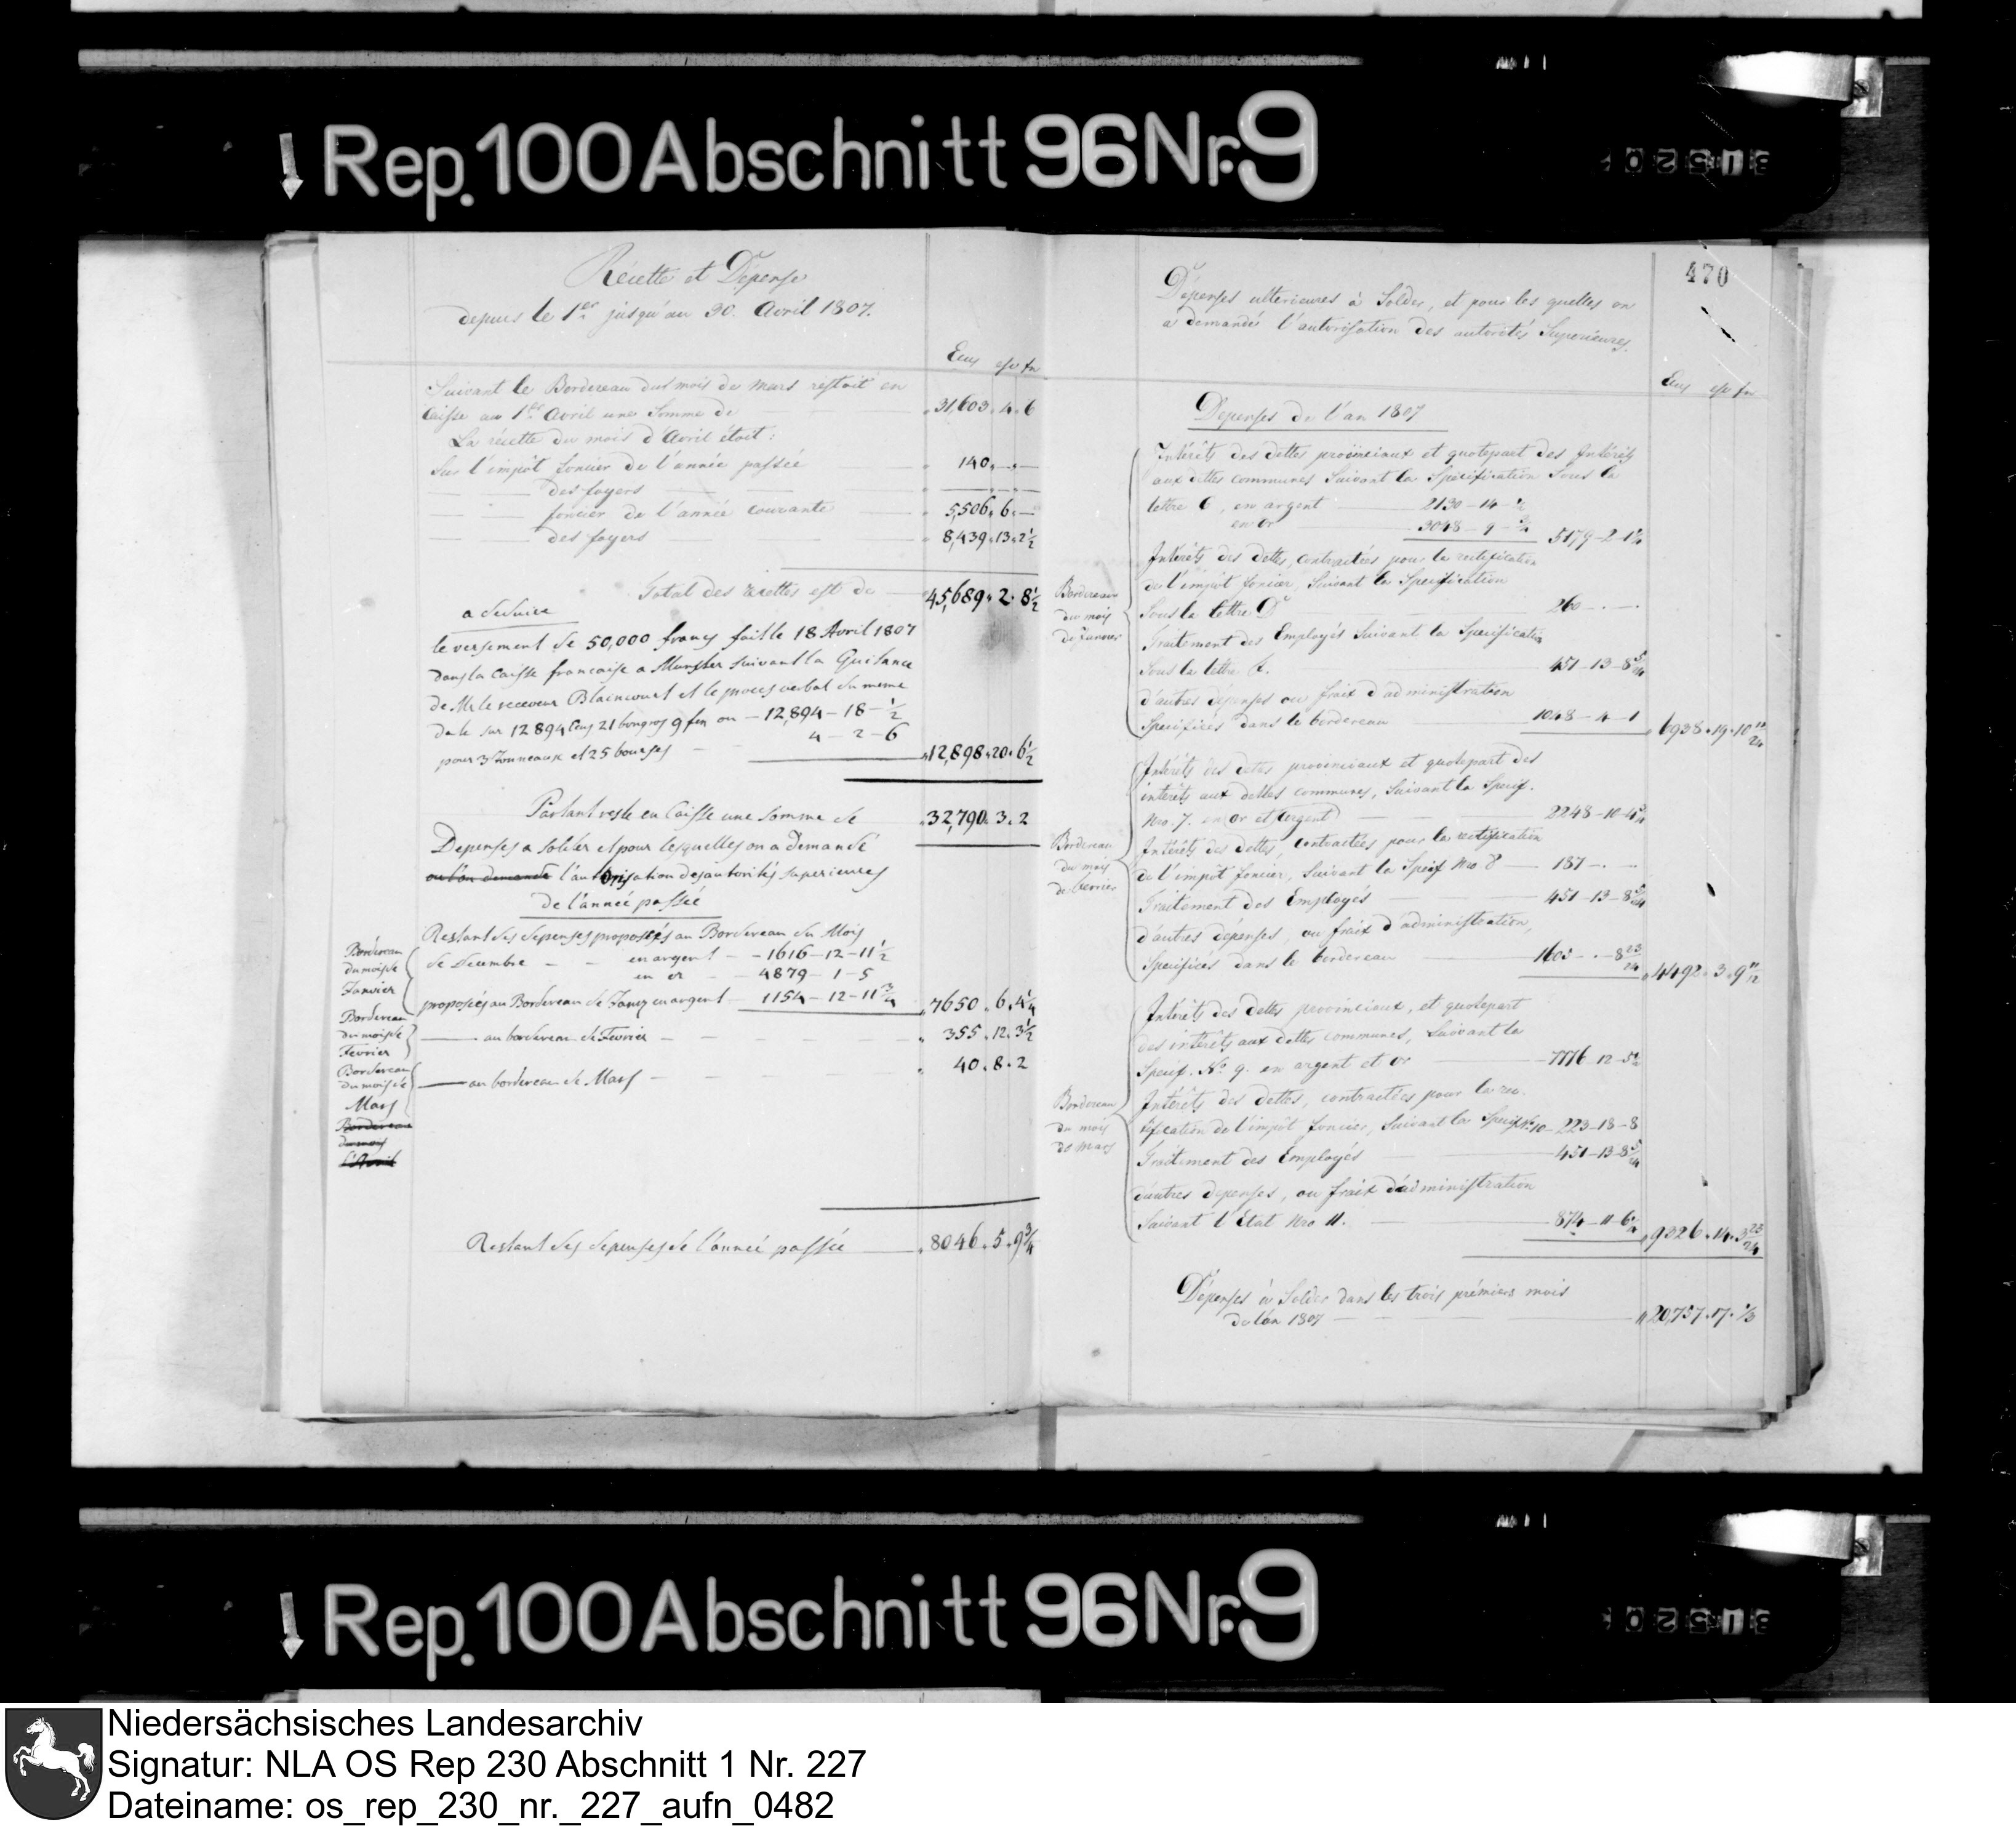 Rep. 100 Abschnitt 96 Nr. 9
Récette et Dépense
depuis le 1er jusqu'au 30. Avril 1807.
Ecus
Suivant le Bordereau du mois de Mars restoit en
Caisse au 1er Avril une Somme de 31,603. 4. 6
La récette du mois d'Avril étoit:
Sur l'impôt foncier de l'année passée 140. — . —
— — des foyers — — —
— — foncier de l'année courante 5,506. 6. —
— — des foyers — 8,439. 13. 2½
Total des recettes est de — 45,689. 2. 8½
a deduire
le versement de 50,000 francs fait le 18 Avril 1807
dans la Caisse francaise a Munster suivant la Quitance
de Mr le receveur Blaincourt et le proces verbal du meme
date sur 12894 Ecus 21 bongros 9 fen ou — 12,894 — 18 — ½
pour 3 tonneaux et 25 bourses — 4 — 2 — 6
12,898. 20. 6½
Partant reste en Caisse une Somme de 32,790. 3. 2
Depenses a solder et pour lesquelles on a demandé
ou l'on demande l'autorisation des autorités superieures
de l'année passée
Restant des depenses proposées au Bordereau du Mois
de Decembre — — en argent — 1616 — 12 — 11½
en or — 4879 — 1 — 5
Bordereau
du mois de
Janvier
proposées au Bordereau de Janv en argent — 1154 — 12 — 11¾
7650. 6. 4¼
Bordereau
du mois de
Fevrier
— au bordereau de Fevrier — 355. 12. 3½
Bordereau
du mois de
Mars
— au bordereau de Mars — 40. 8. 2
Bordereau
du mois
d'Avril
Restant des depenses de l'année passée 8046. 5. 9¾
470
Dépenses ulterieures à Solder, et pour les quelles on
a demandé l'autorisation des autorités Superieures.
Ecus
Dépenses de l'an 1807
Intérêts des dettes provinciaux et quotepart des Intérêts
aux dettes communes Suivant la Spécification Sous la
lettre C, en argent — 2130 — 14 —
en or — 3048 — 9 —
5179 — 2 —
Intérêts des dettes, contractées pour la rectification
de l'impôt foncier, Suivant la Specification
Sous la lettre D — 260 — . —
Bordereau
du mois
de Janvier
Traitement des Employés Suivant la Specification
Sous la lettre E. — 451 — 13 — 8
d'autres dépenses ou fraix d'administration
Specifiées dans le bordereau — 1048 — 4 — 1
6938. 19. 10
Intérêts des dettes provinciaux et quotepart des
intérêts aux dettes communes, Suivant la Specif.
Nro. 7. en or et argent — 2248 — 10 —
Bordereau
du mois
de Fevrier
Intérêts des dettes, contractées pour la rectification
de l'impôt foncier, Suivant la Specif Nro 8 — 187 — . —
Traitement des Employés — 451 — 13 — 8
d'autres dépenses, ou fraix d'administration,
Specifiées dans le bordereau — 1605 — . — 8 23/24
4492. 3. 9 11/12
Intérêts des dettes provinciaux, et quotepart
des intérêts aux dettes communes, Suivant la
Specif. No. 9. en argent et or — 7776 — 12 —
Bordereau
du mois
de Mars
Intérêts des dettes, contractées pour la rec-
tification de l'impôt foncier, Suivant la Specif No 10 — 223 — 18 — 8
Traitement des Employés — 451 — 13 — 8
d'autres depenses, ou fraix d'administration
Suivant l'Etat Nro 11. — 874 — 11 — 6
9326. 14. 3 23/24
Dépenses à Solder dans les trois prémiers mois
de l'an 1807 — 20,757. 17. ⅓
Rep. 100 Abschnitt 96 Nr. 9
Niedersächsisches Landesarchiv
Signatur: NLA OS Rep 230 Abschnitt 1 Nr. 227
Dateiname: os_rep_230_nr._227_aufn_0482